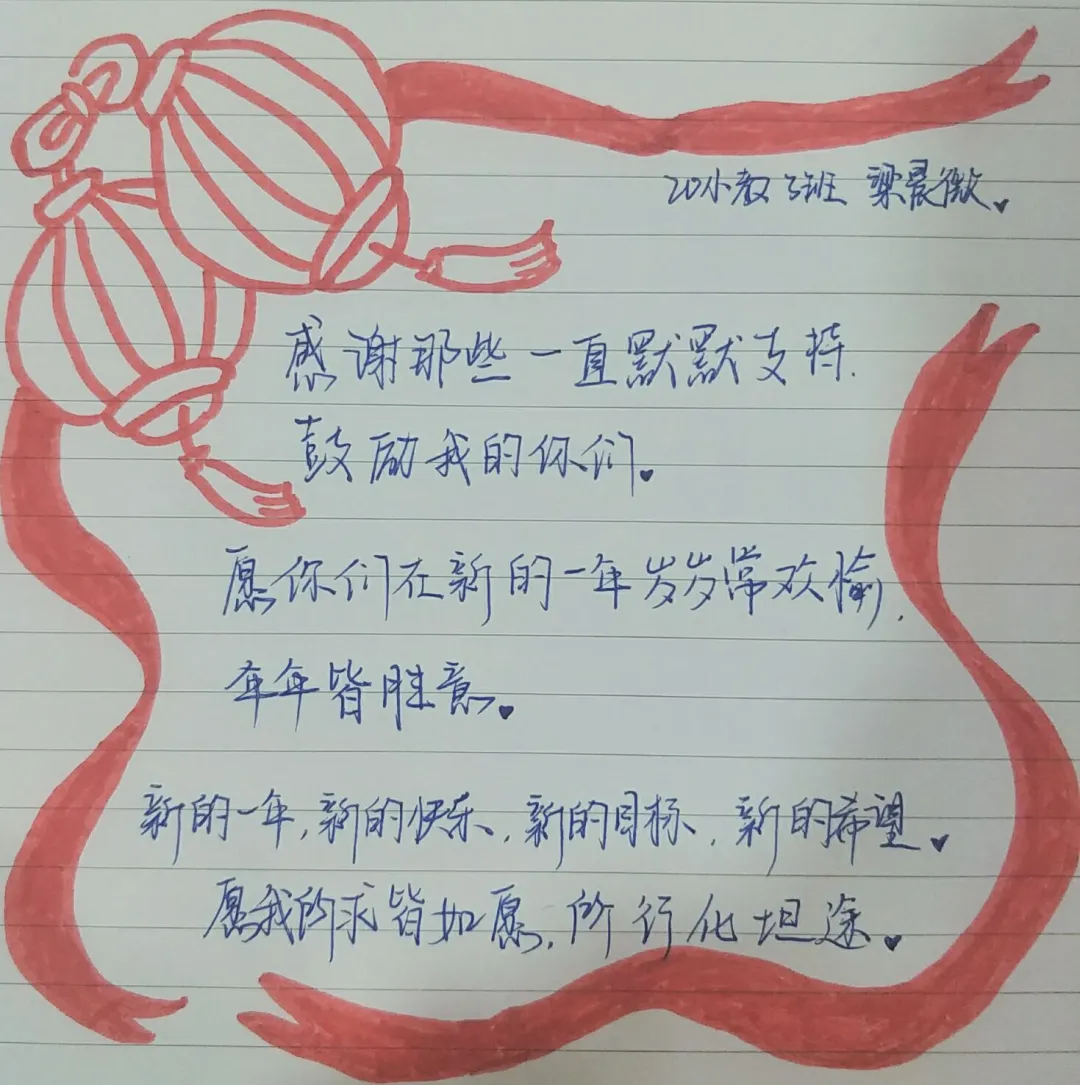 20小教3班 梁晨薇
感谢那些一直默默支持.
鼓励我的你们。
愿你们在新的一年岁岁常欢愉,
年年皆胜意。
新的一年,新的快乐,新的目标,新的希望。
愿我所求皆如愿,所行化坦途。